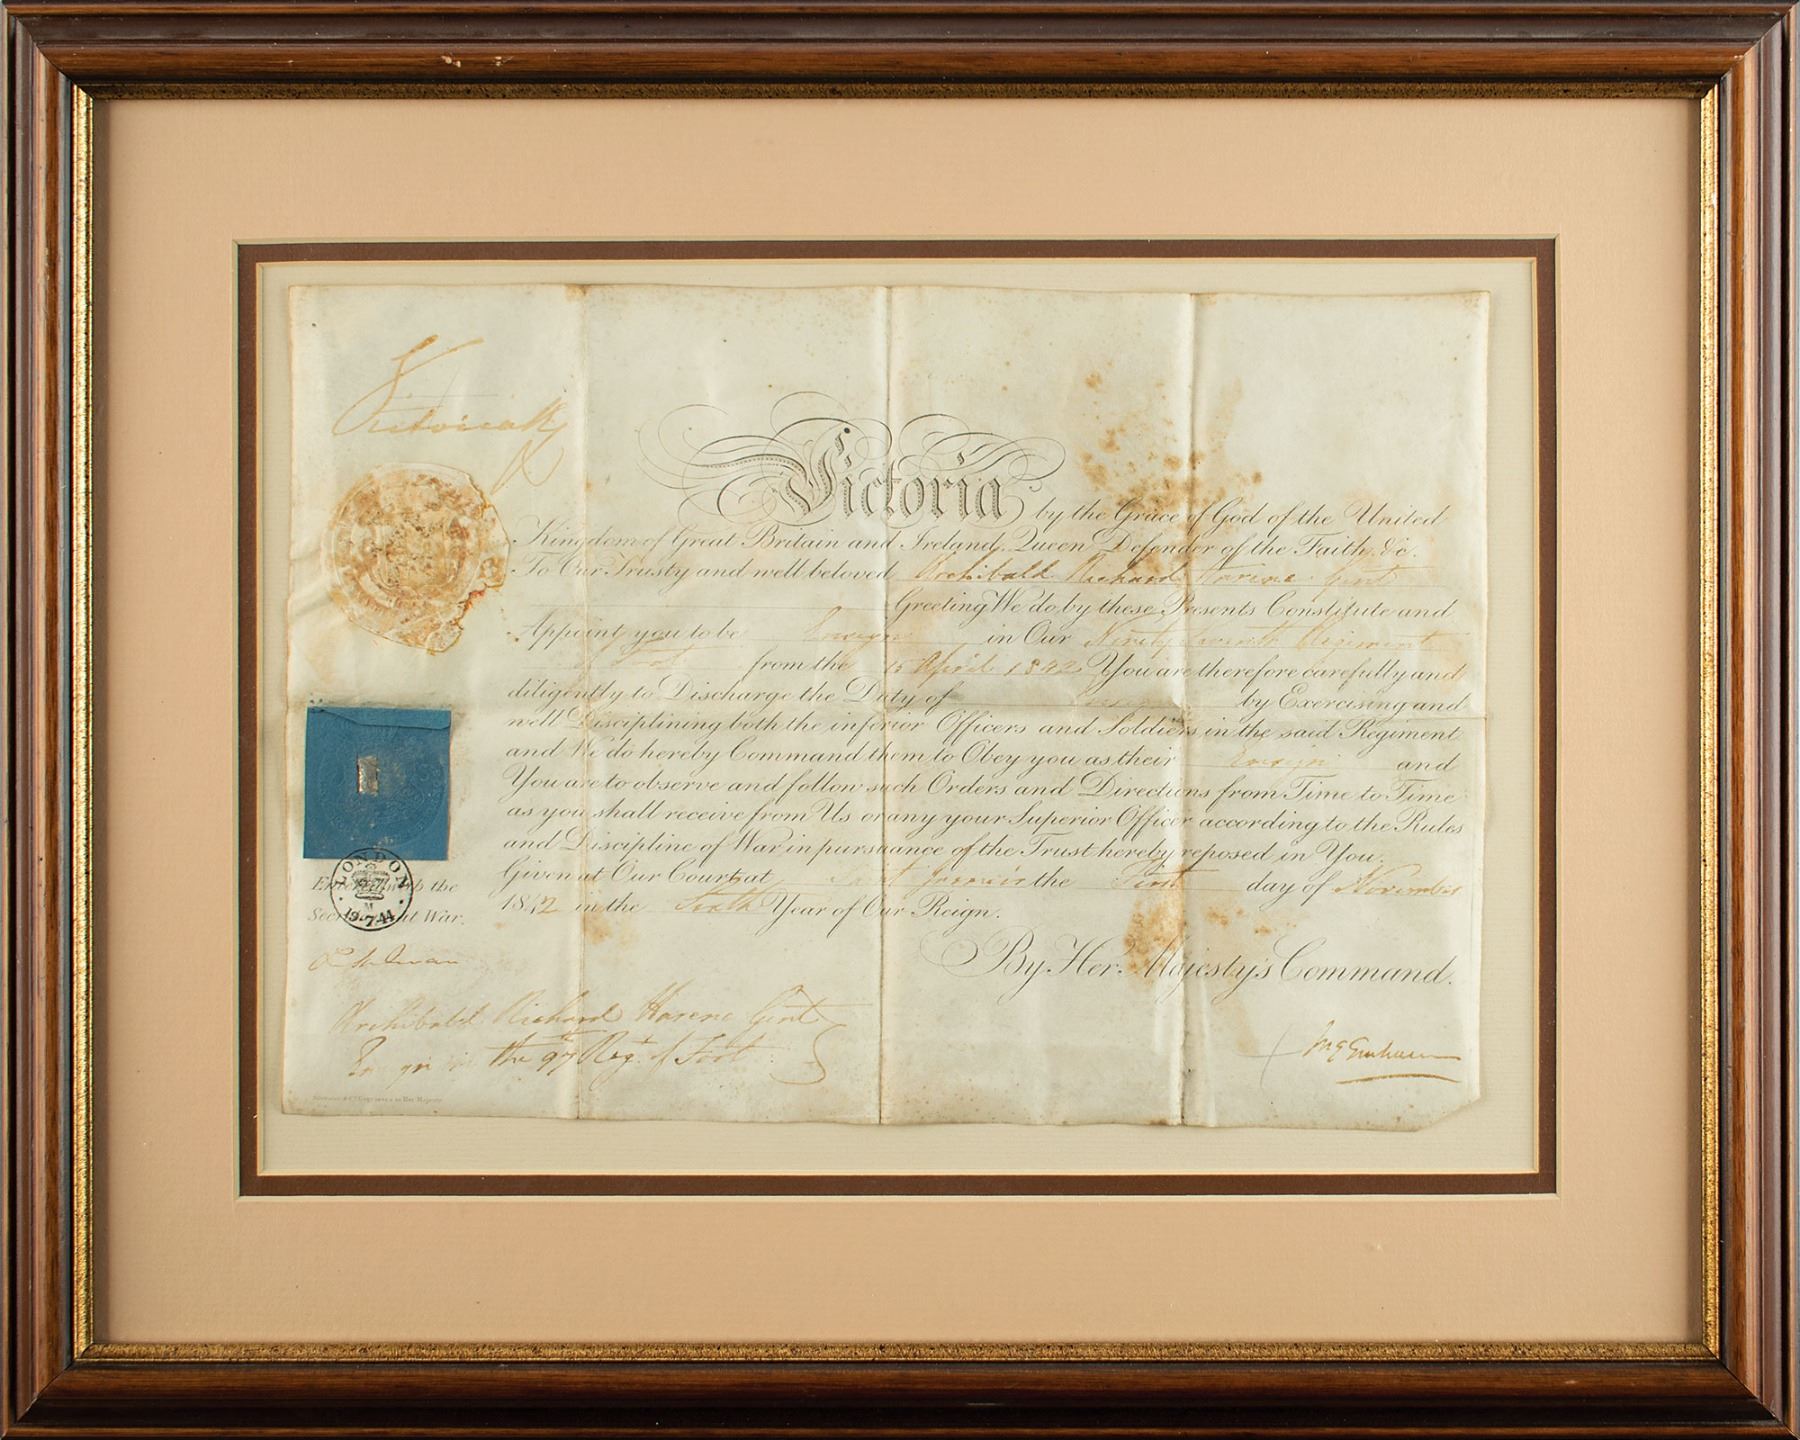 Victoria R
Victoria by the Grace of God of the United
Kingdom of Great Britain and Ireland, Queen, Defender of the Faith, &c.
To Our Trusty and well beloved Archibald Richard Harene Gent
Greeting We do by these Presents Constitute and
Appoint you to be Ensign in Our Ninety Seventh Regiment
of Foot from the 15 April 1842 You are therefore carefully and
diligently to Discharge the Duty of Ensign by Exercising and
well Disciplining both the inferior Officers and Soldiers in the said Regiment
and We do hereby Command them to Obey you as their Ensign and
You are to observe and follow such Orders and Directions from Time to Time
as you shall receive from Us or any your Superior Officer according to the Rules
and Discipline of War in pursuance of the Trust hereby reposed in You.
Given at Our Court at Saint James's the First day of November
1842 in the Sixth Year of Our Reign.
By Her Majesty's Command.
LONDON
M
19.7.44
Entered with the
Secretary at War.
Archibald Richard Harene Gent
Ensign in the 97 Regt. of Foot